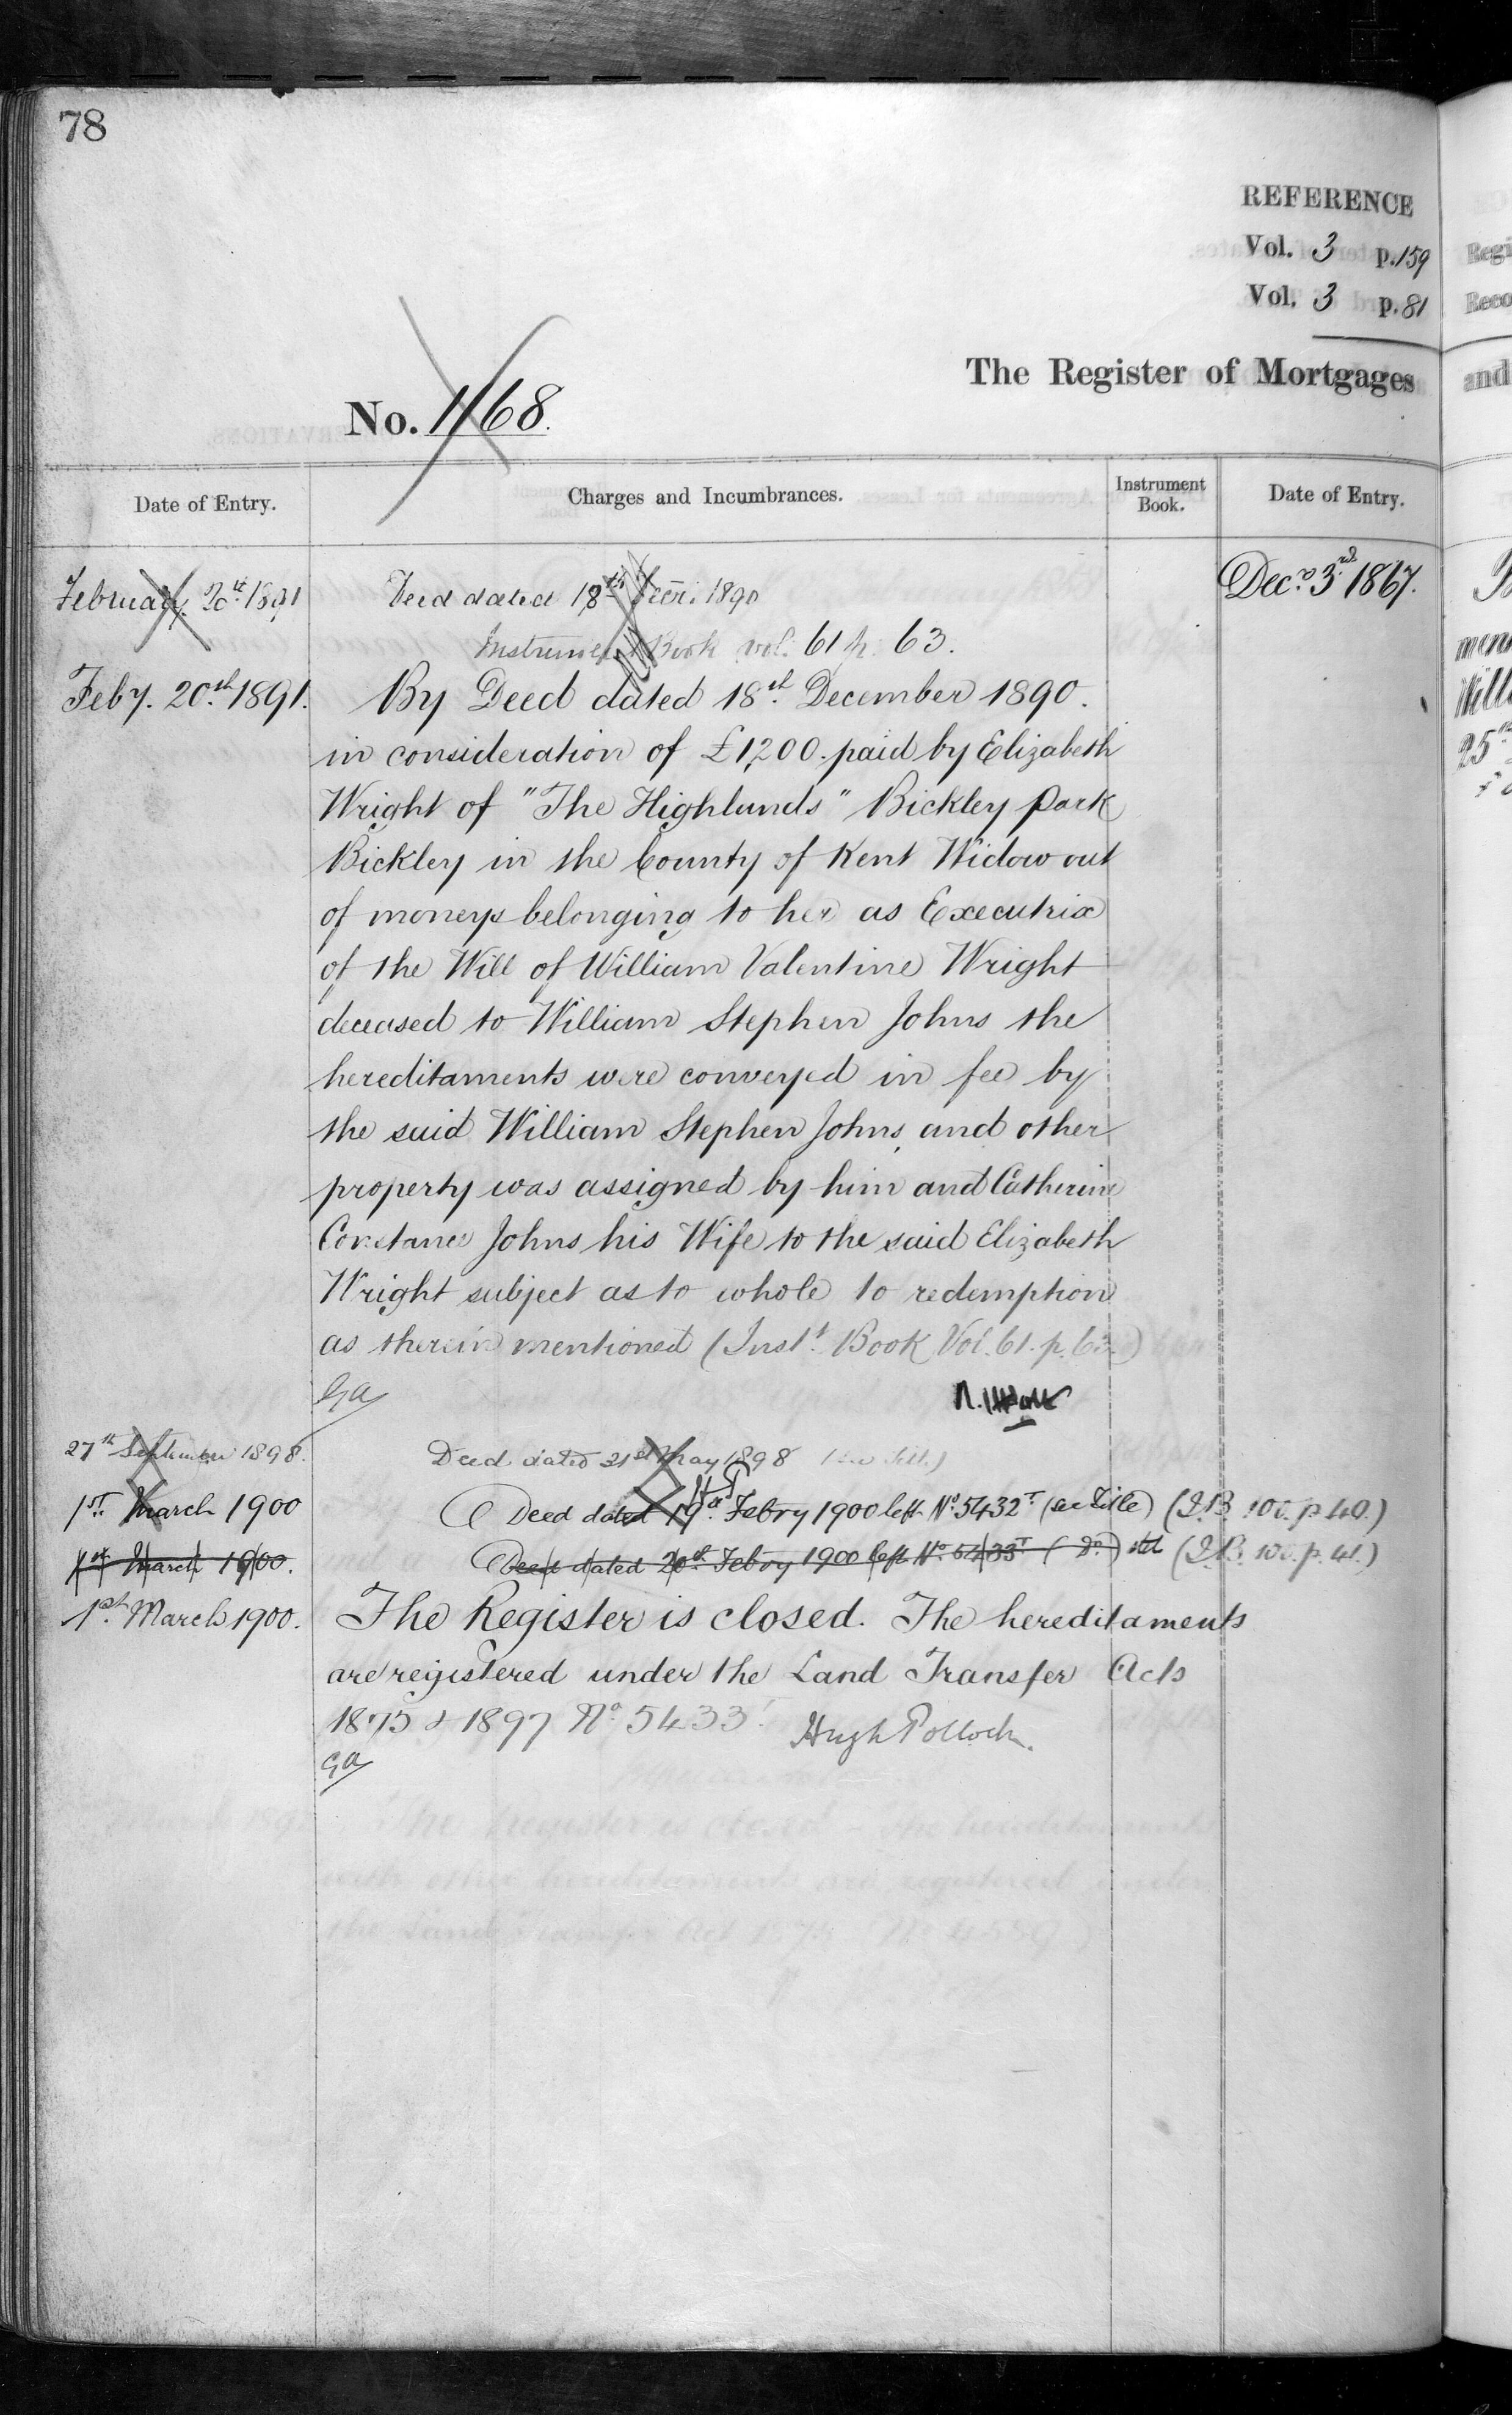 78
REFERENCE
Vol. 3 p. 159
Vol. 3 p. 81
The Register of Mortgages
No. 1168.
Date of Entry.
Charges and Incumbrances.
Instrument Book.
Date of Entry.
February 20th 1891
Deed dated 18th Decr. 1890
Dec. 3rd 1867.
Instrument Book vol. 61 p. 63.
Feby. 20th 1891. By Deed dated 18th December 1890.
in consideration of £1,200. paid by Elizabeth
Wright of "The Highlands" Bickley Park
Bickley in the County of Kent Widow out
of moneys belonging to her as Executrix
of the Will of William Valentine Wright
deceased to William Stephen Johns the
hereditaments were conveyed in fee by
the said William Stephen Johns, and other
property was assigned by him and Catherine
Constance Johns his Wife to the said Elizabeth
Wright subject as to whole to redemption
as therein mentioned (Inst. Book Vol. 61. p. 63.)
GA
27th September 1898. Deed dated 21st May 1898
1st March 1900 Deed dated 19th Febry 1900 left No. 5432T (see Title) (I.B. 100. p. 40.)
1st March 1900. Deed dated 20th Febry 1900 left No. 5433T (Do.) (I.B. 100. p. 41.)
1st March 1900. The Register is closed. The hereditaments
are registered under the Land Transfer Acts
1875 & 1897 No. 5433. Hugh Pollock.
GA
Regi
Reco
and
Will
25